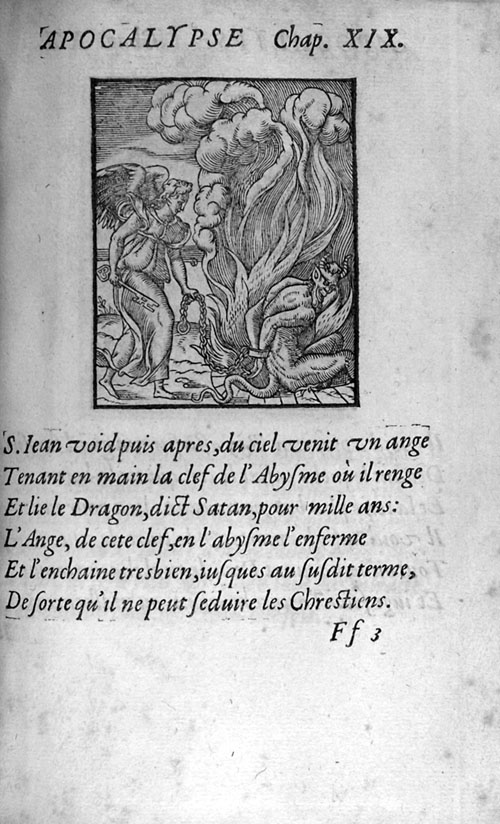 APOCALYPSE Chap. XIX.
S. Iean void puis apres, du ciel venit vn ange
Tenant en main la clef de l'Abyſme où il renge
Et lie le Dragon, dict Satan, pour mille ans:
L'Ange, de cete clef, en l'abyſme l'enferme
Et l'enchaine tresbien, iuſques au ſuſdit terme,
De ſorte qu'il ne peut ſeduire les Chreſtiens.
Ff 3